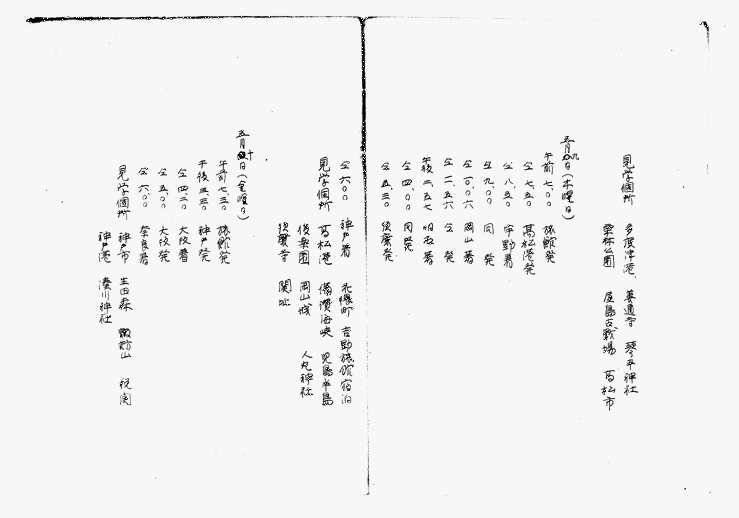 見学個所 多度津港、善通寺 琴平神社
栗林公園 屋島古戦場 高松市
五月九日(木曜日)
午前七、〇〇 旅館発
仝七、五〇 高松港発
仝八、五〇 宇野着
仝九、〇〇 同発
仝一〇、〇六 岡山着
仝一一、五六 仝発
午後二、五七 明石着
仝四、〇〇 同発
仝五、三〇 須磨発
仝六、〇〇 神戸着 花隈町 吉野旅館宿泊
見学個所 高松港 備讃海峡 児島半島
後楽園 岡山城 人丸神社
須磨寺 関址
五月十日(金曜日)
午前七、三〇 旅館発
午後三、三〇 神戸発
仝四、二〇 大阪着
仝五、〇〇 大阪発
仝六、〇〇 奈良着
見学個所 神戸市 生田森 諏訪山 税関
神戸港 湊川神社